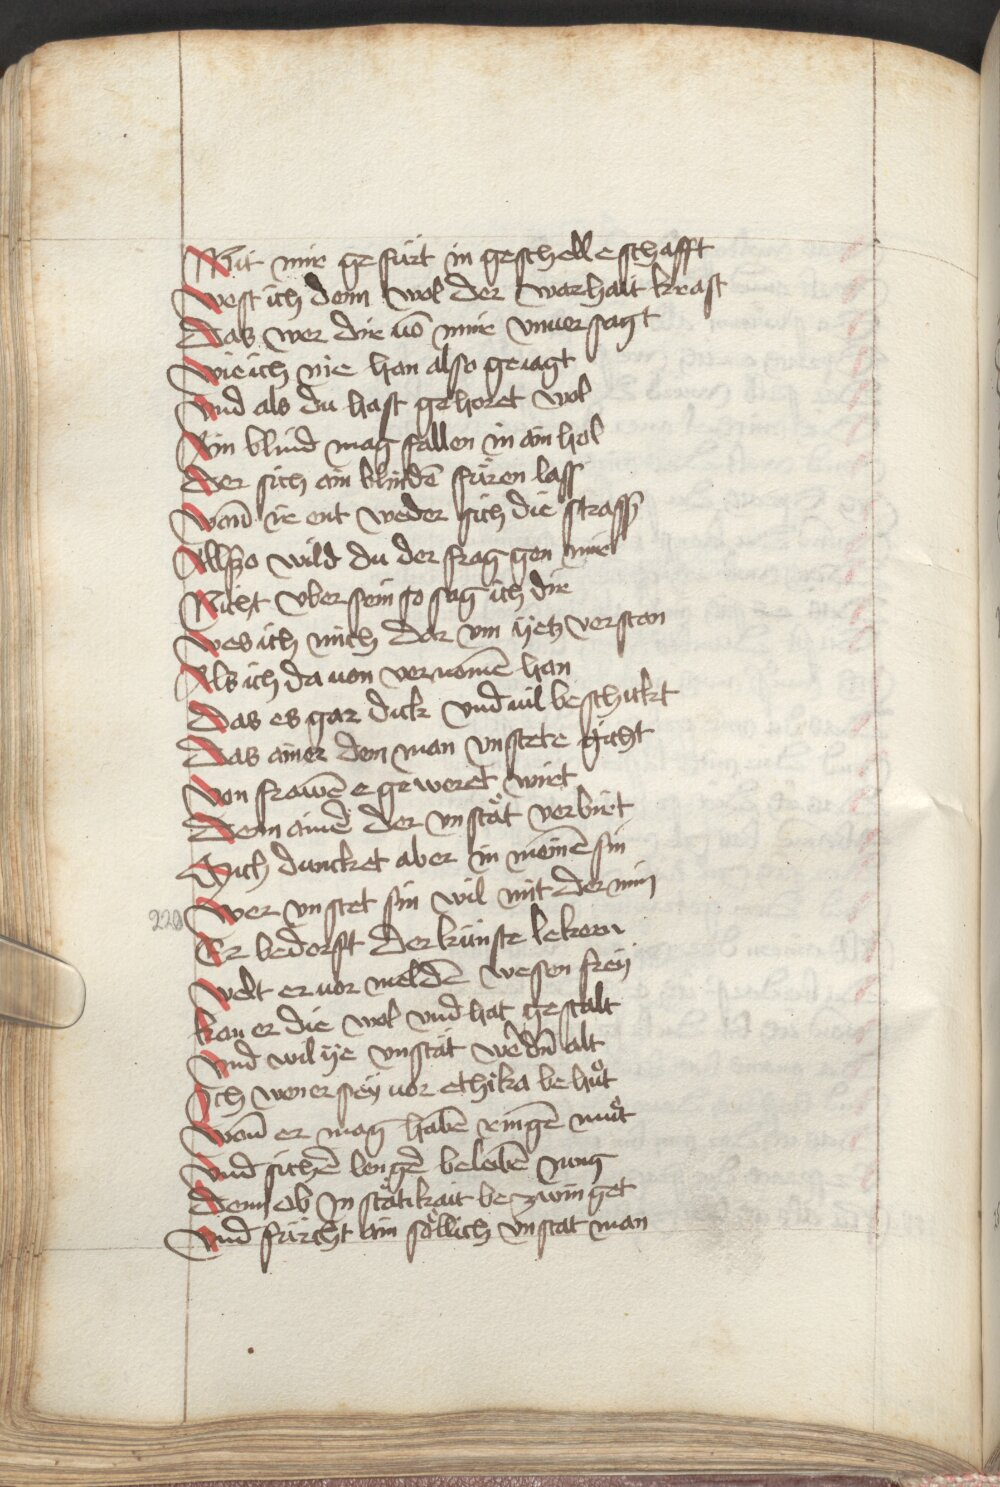 Mit mir gefürt in geschelleschafft
West ich denn wol der warhait kraft
Das wer dir uō mir vnuersagt
Wie ich nie han also geiagt
Vnd als du hast gehoret wol
Ain blind mag fallen in ain hol
Der sich ain blindē füren lass
Wañ ir ent weder sich die strass
Allso wild du der frag gen mir
Nicht vber sein so sag ich dir
Wes ich mich dar vm ÿetz verstan
Als ich da uon vernomē han
Das es gar dick vnd uil beschickt
Das ainer dem man vnstete gicht
Von frawē e geweret wirt
Denn ainē der vnstät verbirt
Mich duncket aber in meinē sin
Wer vnstet sin wil mit der min
220
Er bedorft der künste lekery
Welt er uor meldē wesen freÿ
kan er die wol vnd hat gestalt
Vnd wil ÿe vnstät werdn̄ alt
Ich wen er seÿ uor ethika behůt
Wañ er mag habē ringē můt
Vnd sichē lengē belebē iung
Denn ob in stätikait bezwinget
Vnd fürcht ain söllich vnstat man